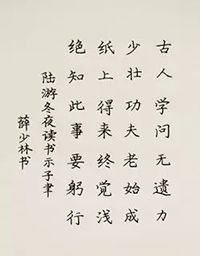 古人学问无遗力
少壮功夫老始成
纸上得来终觉浅
绝知此事要躬行
陆游冬夜读书示子聿
薛少林书